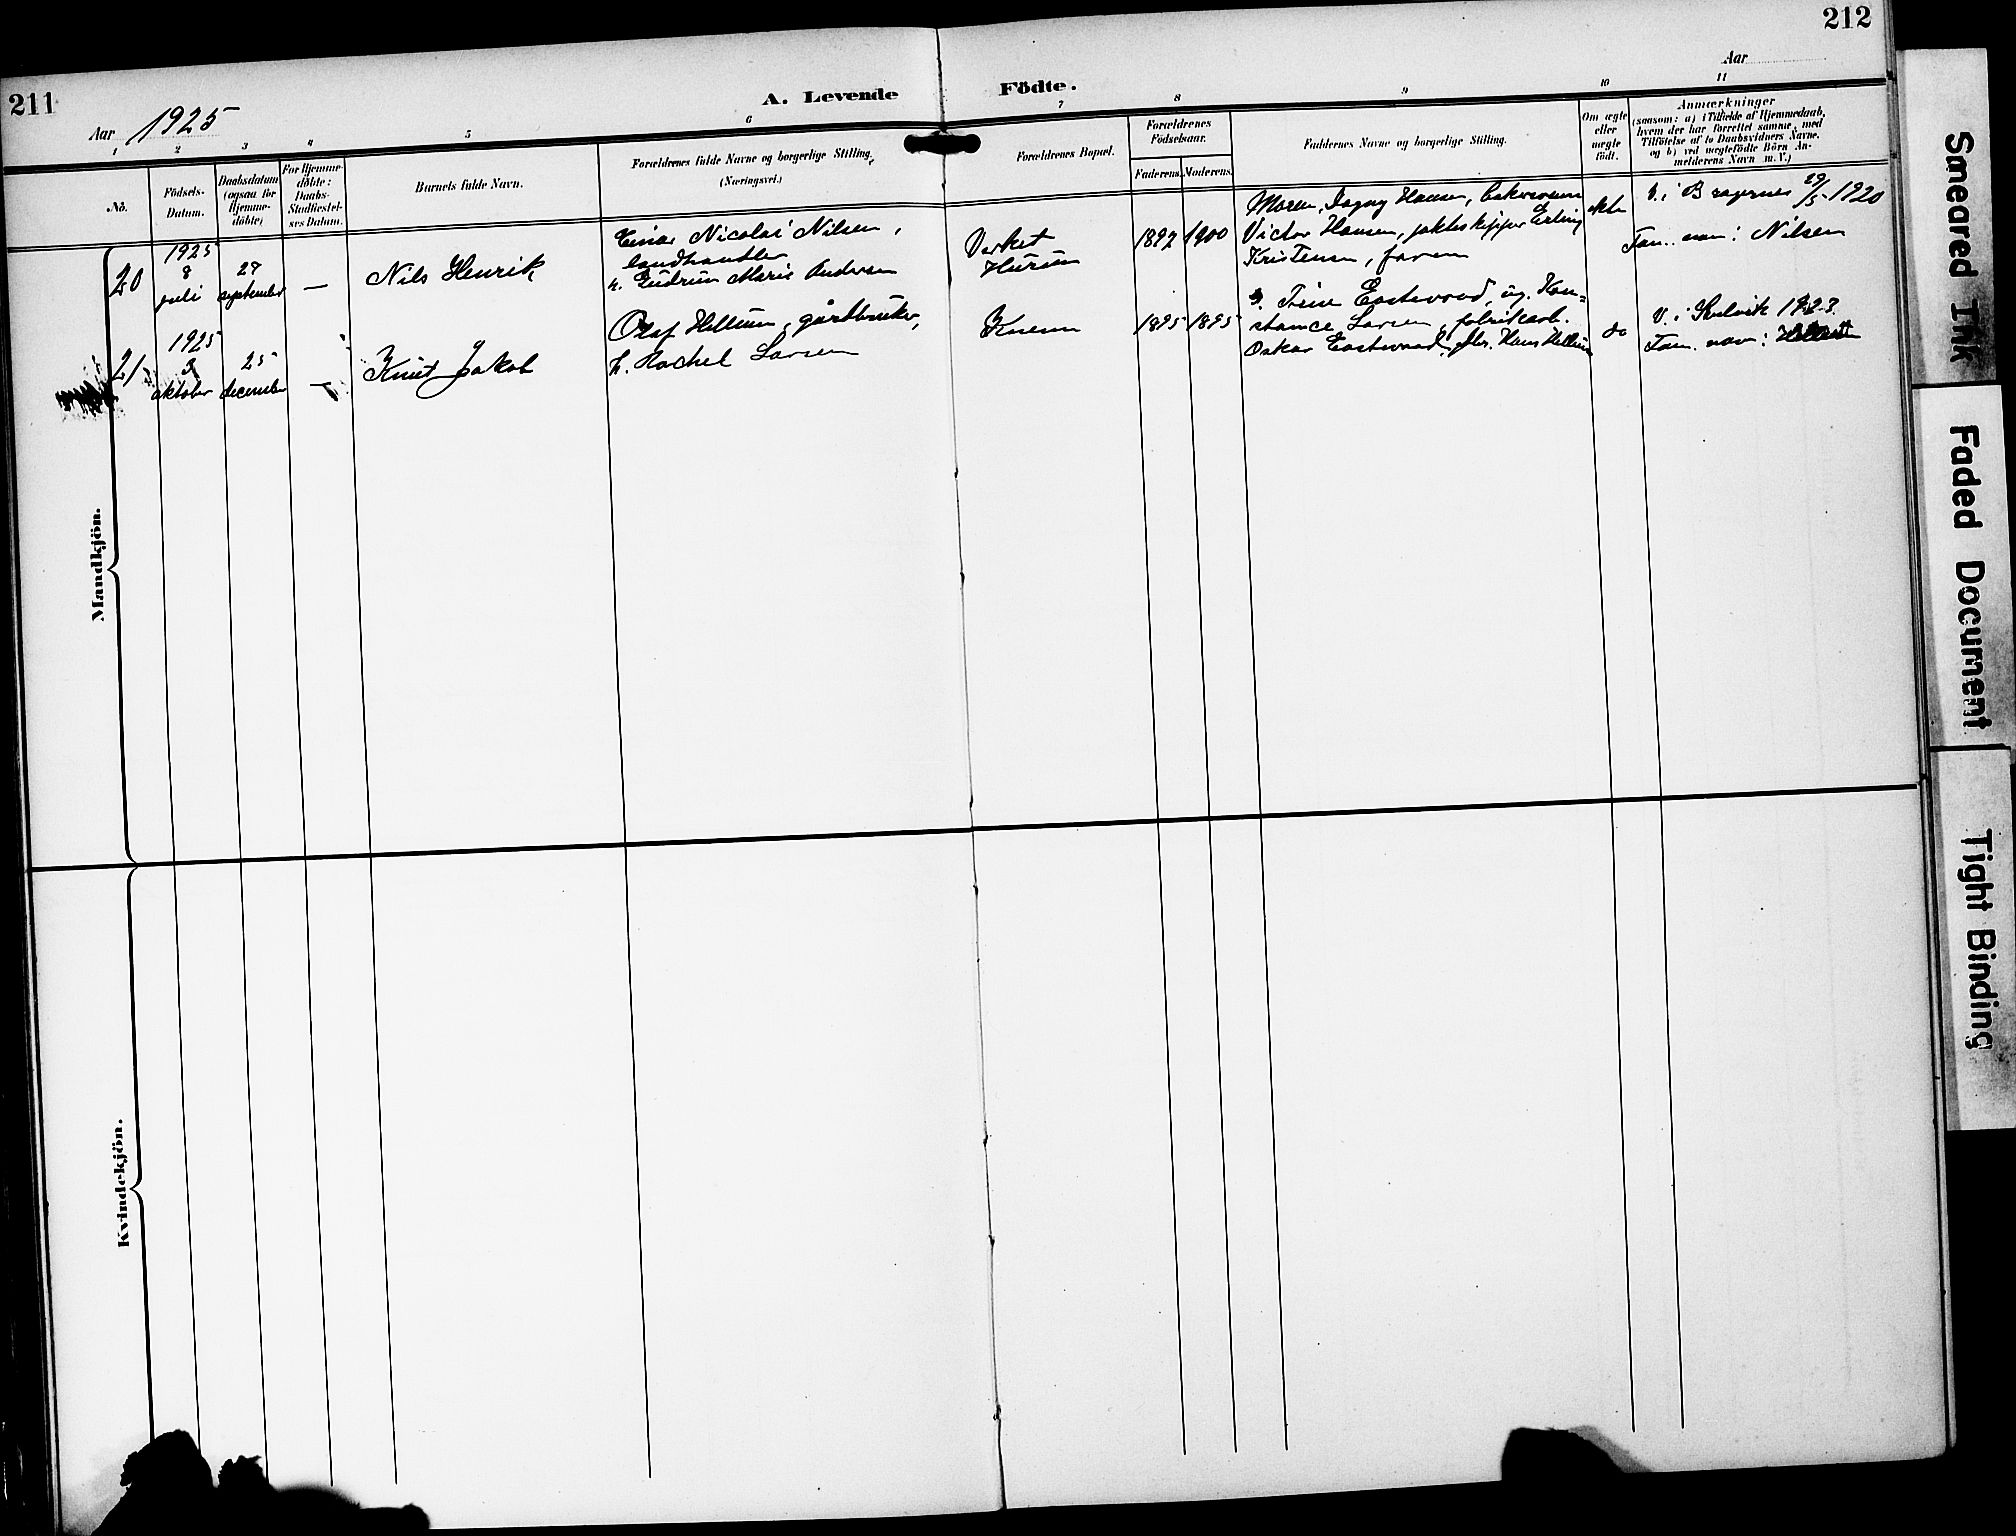 211
212
Aar 1925
A. Levende Födte.
Aar
1 2 3 4 5 6 7 8 9 10 11
No.
Födsels-
Datum.
Daabsdatum
(ogsaa for
Hjemme-
döbte)
For Hjemme-
döbte:
Daabs-
Stadfæstel-
ses Datum.
Barnets fulde Navn.
Forældrenes fulde Navne og borgerlige Stilling.
(Næringsvei.)
Forældrenes Bopæl.
Forældrenes
Födselsaar.
Faderens. Moderens.
Faddernes Navne og borgerlige Stilling.
Om ægte
eller
uægte
födt.
Anmærkninger
(saasom: a) i Tilfælde af Hjemmedaab,
hvem der har forrettet samme, med
Tilföielse af to Daabsvidners Navne.
og b) ved uægtefödte Börn An-
melderens Navn m. V.)
20
1925
8
juli
27
september
—
Nils Henrik
Einar Nicolai Nilsen,
landhandler
h. Gudrun Marie Andersen
Verket
Hurum
1892 1900
Moren, Dagny Hansen,
Victor Hansen, jakteskipper Erling
Kristensen, faren
ekte
V. i Bragernes 29/5 1920
Fam. navn: Nilsen
21
1925
3
oktober
25
december
—
Knut Jakob
Olaf Hellum, gårdbruker,
h. Rachel Larsen
Knem
1895 1895
g. Trine Eastwood, ug. Kon-
stance Larsen, fabrikarb.
Oskar Eastwood, Hans Hellum
do
V. i 1923.
Fam. navn:
Mandkjön.
Kvindekjön.
Smeared Ink
Faded Document
Tight Binding